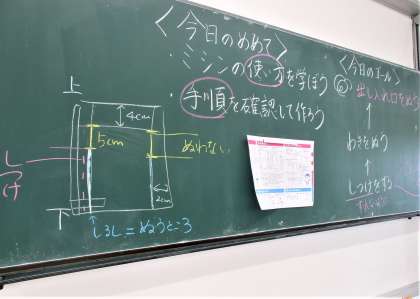 <今日のめめて>
・ミシンの使い方を学ぼう
・手順を確認して作ろう
<今日のゴール>
⑥ 出し入れ口をぬう
↑
わきをぬう
↑
しつけをする
上
4cm
5cm
ぬわない
しつけ
2cm
下
↑しるし=ぬうところ